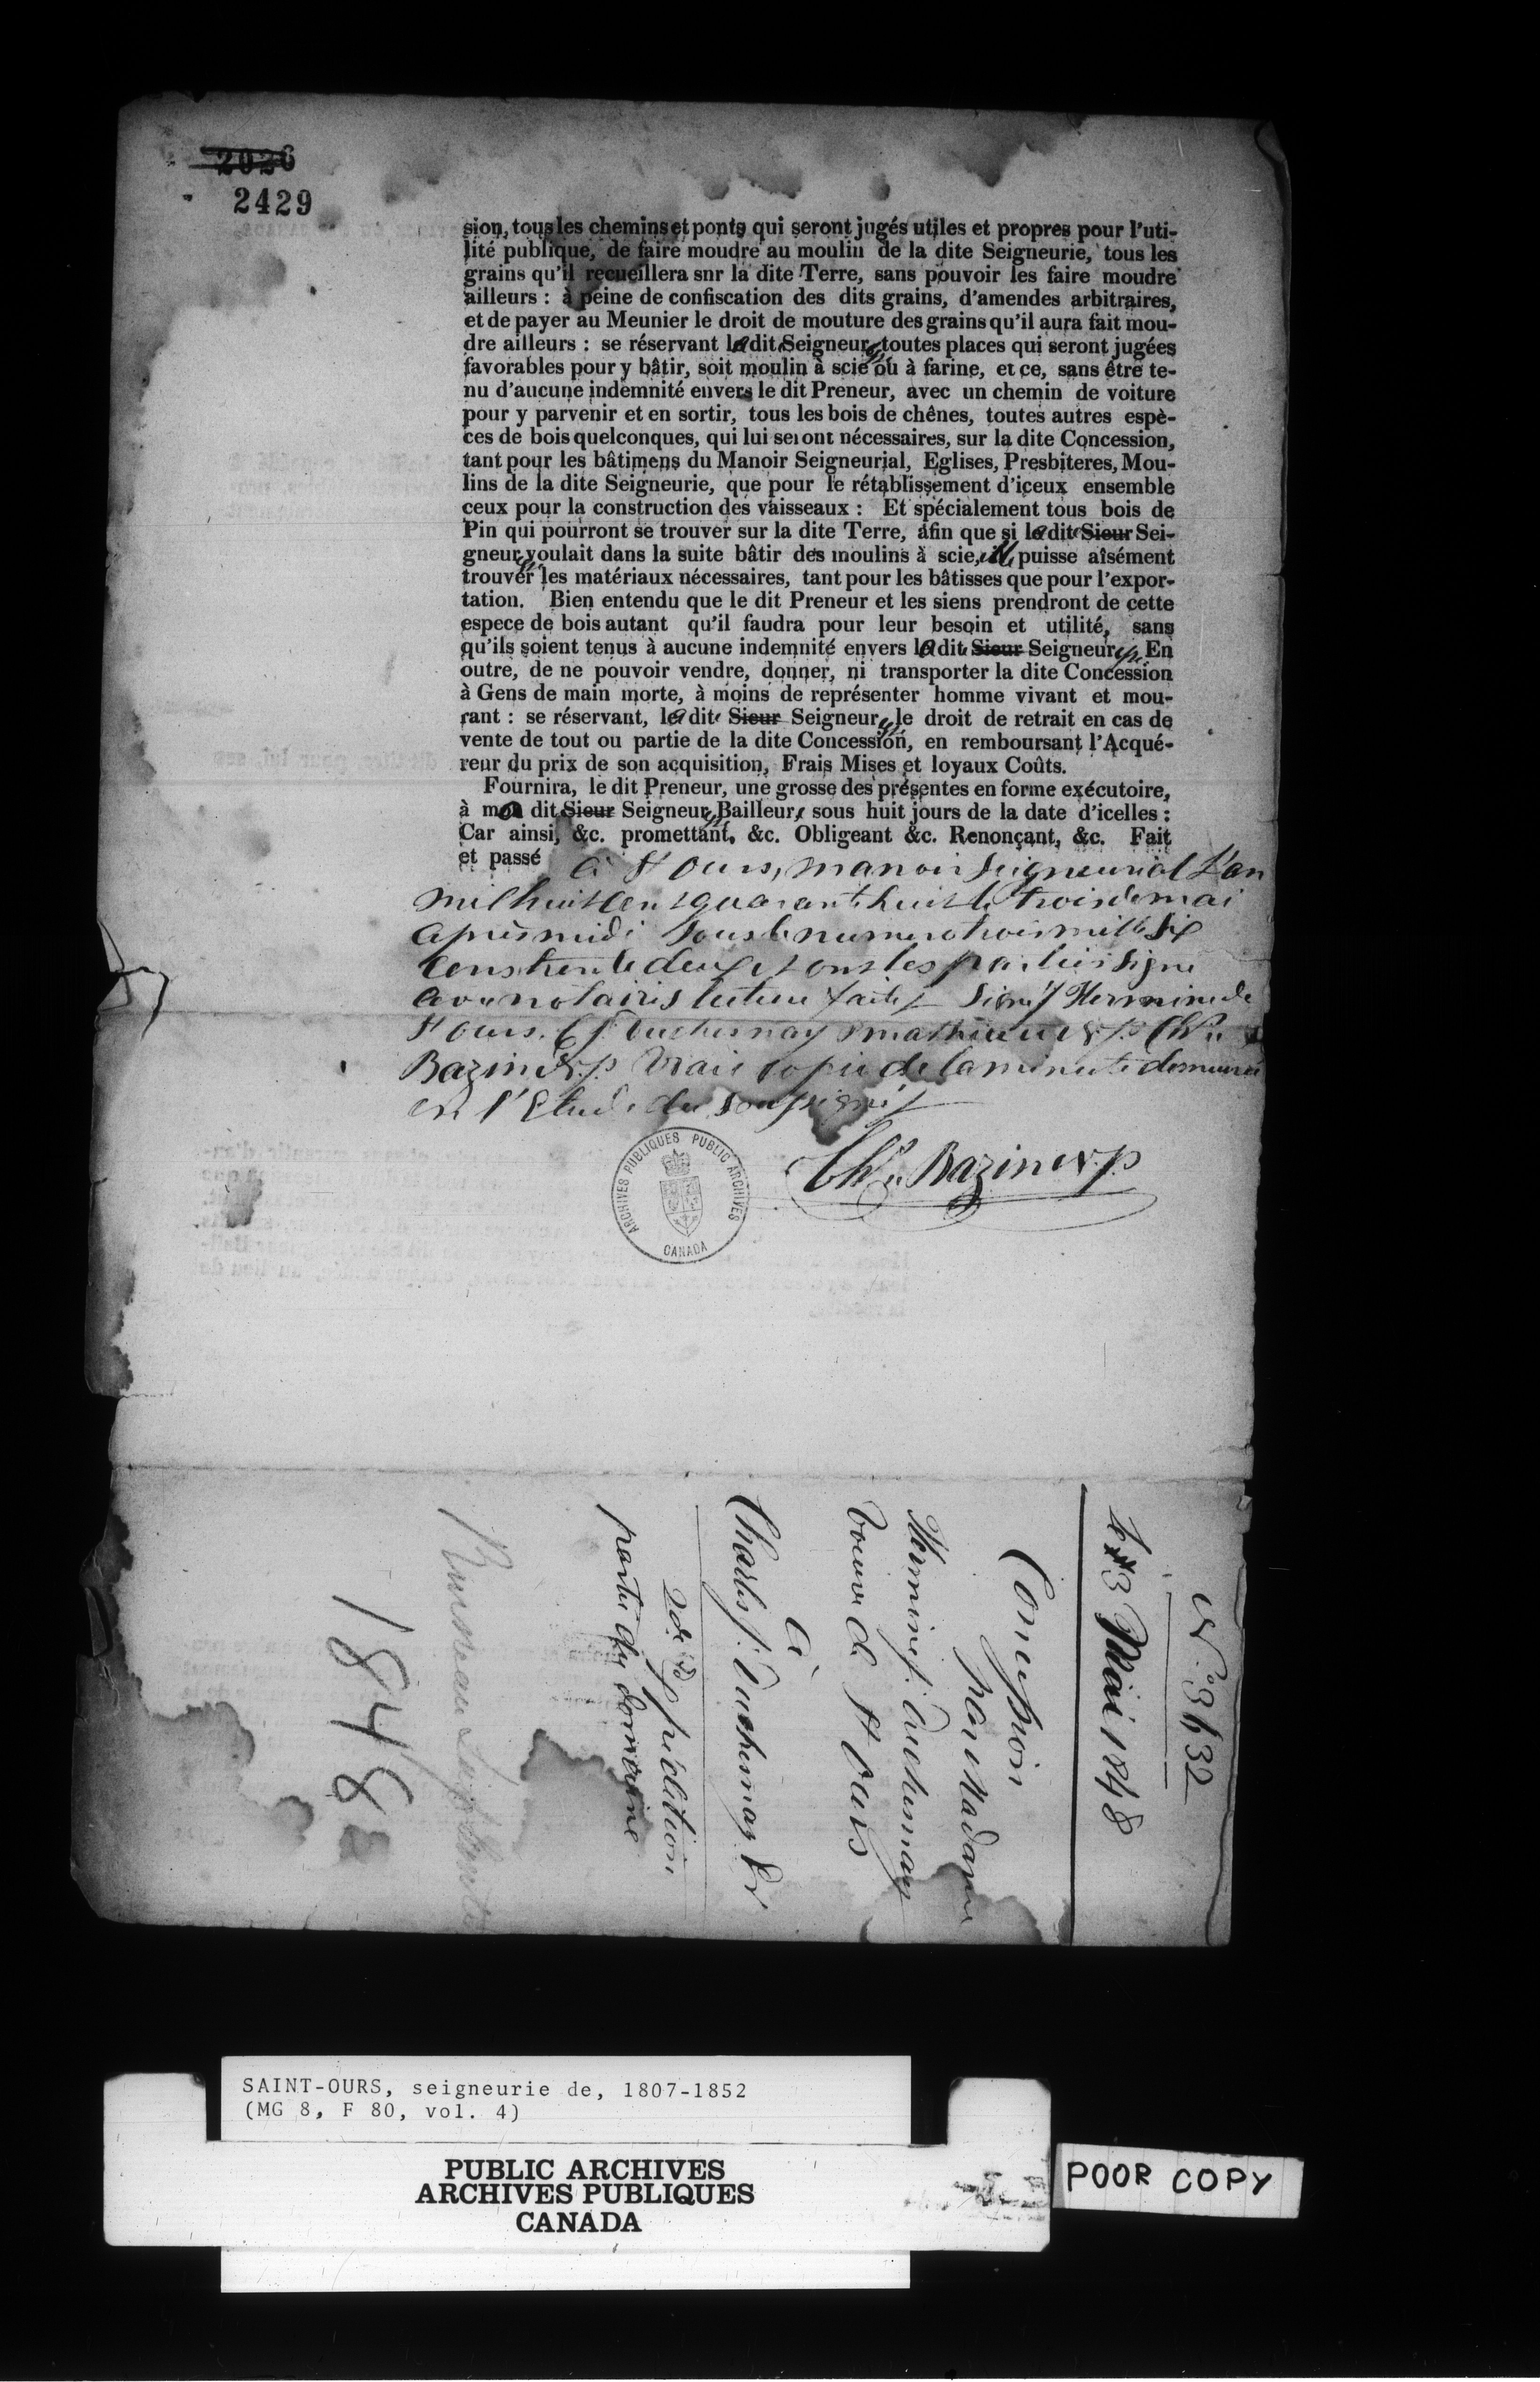 2026
2429
sion, tous les chemins et ponts qui seront jugés utiles et propres pour l'uti-
lité publique, de faire moudre au moulin de la dite Seigneurie, tous les
grains qu'il recueillera snr la dite Terre, sans pouvoir les faire moudre
ailleurs : à peine de confiscation des dits grains, d'amendes arbitraires,
et de payer au Meunier le droit de mouture des grains qu'il aura fait mou-
dre ailleurs : se réservant la dite Seigneuresse toutes places qui seront jugées
favorables pour y bâtir, soit moulin à scie ou à farine, et ce, sans être te-
nu d'aucune indemnité envers le dit Preneur, avec un chemin de voiture
pour y parvenir et en sortir, tous les bois de chênes, toutes autres espè-
ces de bois quelconques, qui lui seront nécessaires, sur la dite Concession,
tant pour les bâtimens du Manoir Seigneurial, Eglises, Presbiteres, Mou-
lins de la dite Seigneurie, que pour le rétablissement d'iceux ensemble
ceux pour la construction des vaisseaux : Et spécialement tous bois de
Pin qui pourront se trouver sur la dite Terre, afin que si la dite Sieur Sei-
gneuresse voulait dans la suite bâtir des moulins à scie, elle puisse aîsément
trouver les matériaux nécessaires, tant pour les bâtisses que pour l'expor-
tation. Bien entendu que le dit Preneur et les siens prendront de cette
espece de bois autant qu'il faudra pour leur besoin et utilité, sans
qu'ils soient tenus à aucune indemnité envers la dite Sieur Seigneuresse. En
outre, de ne pouvoir vendre, donner, ni transporter la dite Concession
à Gens de main morte, à moins de représenter homme vivant et mou-
rant : se réservant, la dite Sieur Seigneuresse le droit de retrait en cas de
vente de tout ou partie de la dite Concession, en remboursant l'Acqué-
reur du prix de son acquisition, Frais Mises et loyaux Coûts.
Fournira, le dit Preneur, une grosse des présentes en forme exécutoire,
à ma dit Sieur Seigneuresse Bailleur, sous huit jours de la date d'icelles :
Car ainsi, &c. promettant, &c. Obligeant &c. Renonçant, &c. Fait
et passé à St Ours, manoir Seigneurial L'an
mil huit cent quarante huit le trois de mai
après midi sous le numero trois mille six
cens trente deux et ont les parties signé
avec notaires lecture faite / Signé / Hermine de
St Ours. C. J. Duchesnay Mathieu N.P. Chs
Bazin N.P. Vraie copie de la minute demeurée
en l'Etude du soussigné /
Chs Bazin N.P.
ARCHIVES PUBLIQUES PUBLIC ARCHIVES
CANADA
No 3632
Le 3 Mai 1848
Concession
par Madame
Hermine J. Duchesnay
Veuve de St Ours
à
Charles J. Duchesnay Er
2de Expédition
partie du domaine
Ruisseau
1848
SAINT-OURS, seigneurie de, 1807-1852
(MG 8, F 80, vol. 4)
PUBLIC ARCHIVES
ARCHIVES PUBLIQUES
CANADA
POOR COPY